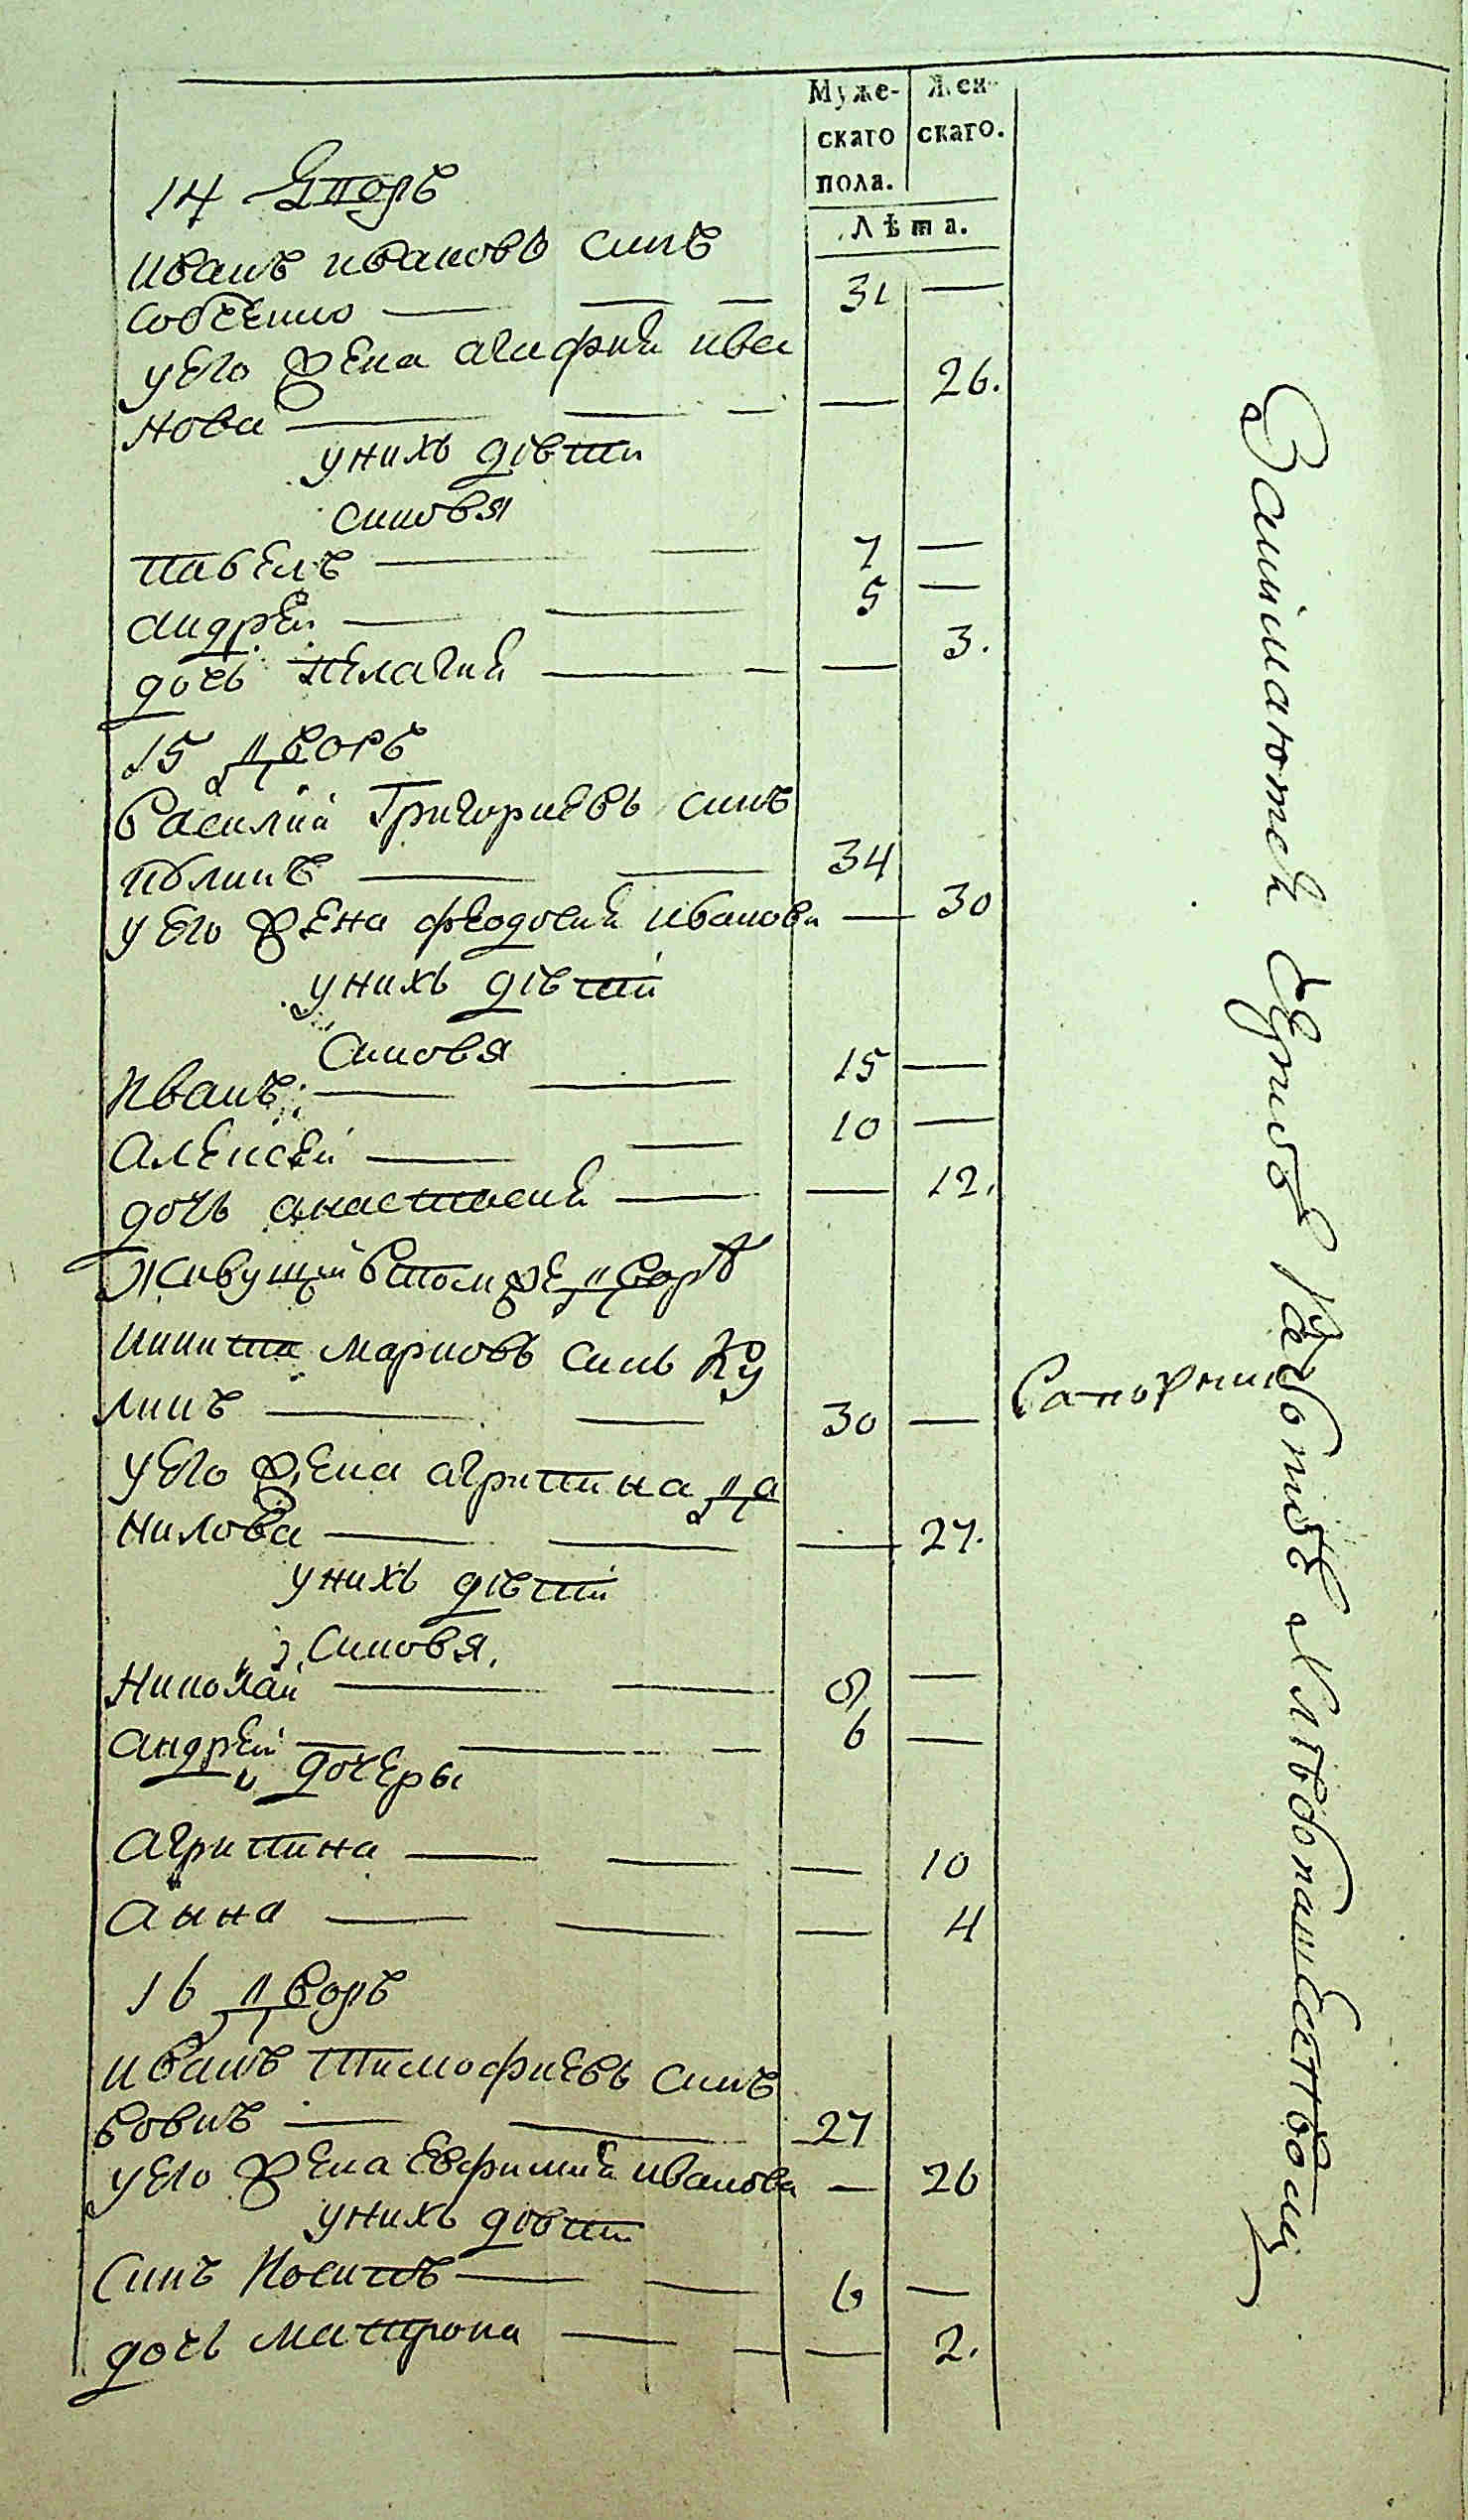 Муже-
скаго
пола.
Жен-
скаго.
Лѣта.
14 Дворъ
Иванъ Ивановъ синъ
31 —
уего жена агафия ива
нова — 26.
унихъ дѣти
синовя
павелъ 7 —
андрей 5 —
дочь пелагия — 3.
15 дворъ
василий Григориевъ синъ
34
уего жена феодосия иванова — 30
унихъ дѣти
Синовя
Иванъ 15 —
Алексей 10 —
дочь анастасия — 12.
Живущий втомже дворѣ
Никита марковъ синъ Ку
линъ 30 —
уего жена агрипина да
нилова — 27.
унихъ дѣти
Синовя,
Николай 8 —
андрей 6 —
дочеры
агрипина — 10
анна — 4
16 дворъ
иванъ тимофиевъ синъ
вовкъ 27
уего жена Евфимия иванова — 26
унихъ дѣти
Синъ Иосипъ 6 —
дочь матрона — 2.
Занимаются
хлѣбопашеством